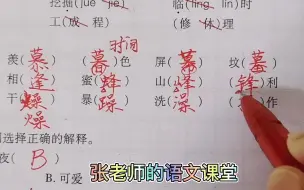 挖掘(jué jué) 临(líng lín)时
工(成 程) (修 休)理
时间
羡(慕) (暮)色 屏(幕) 坟(墓)
相(逢) 蜜(蜂) 山(峰) (锋)利
干(燥) 暴(躁) 洗(澡) (噪)作
燥
选择正确的解释。
夜(B)
B. 可爱
张老师的语文课堂